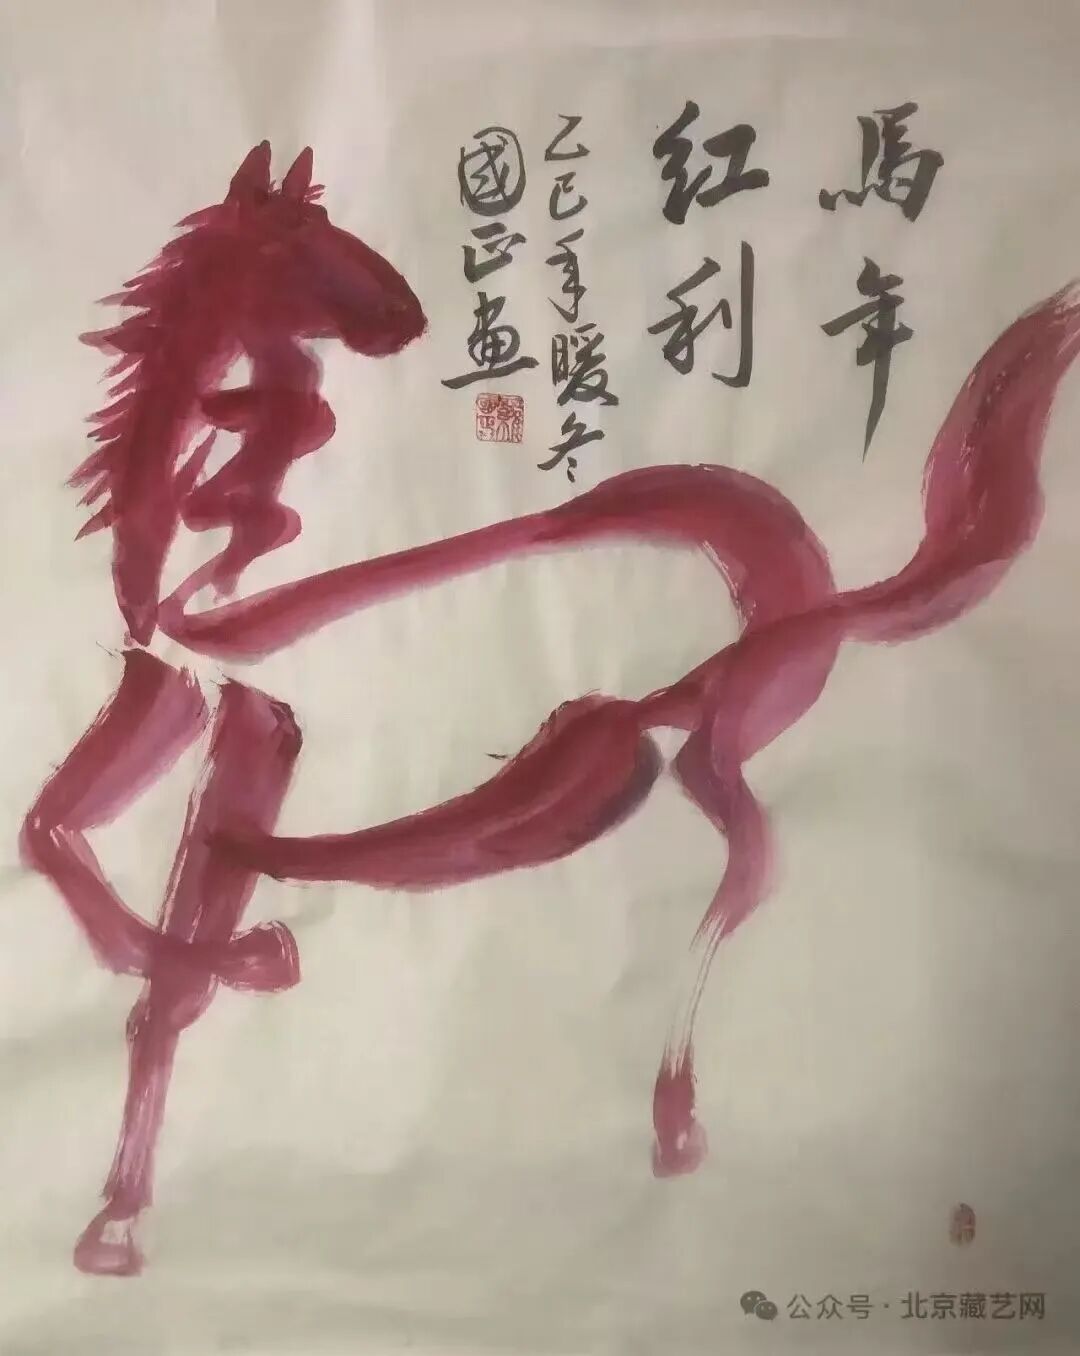 馬年
红利
乙巳年暖冬
國正畫
公众号·北京藏艺网